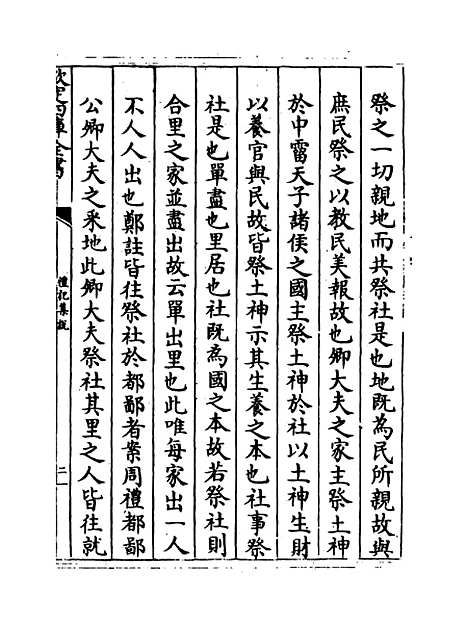 祭之一切親地而共祭社是也地既為民所親故與
庶民祭之以教民美報故也卿大夫之家主祭土神
於中霤天子諸侯之國主祭土神於社以土神生財
以養官與民故皆祭土神示其生養之本也社事祭
社是也單盡也里居也社既為國之本故若祭社則
合里之家並盡出故云單出里也此唯每家出一人
不人人出也鄭註皆往祭社於都鄙者案周禮都鄙
公卿大夫之采地此卿大夫祭社其里之人皆往就
欽定四庫全書
禮記集說
二